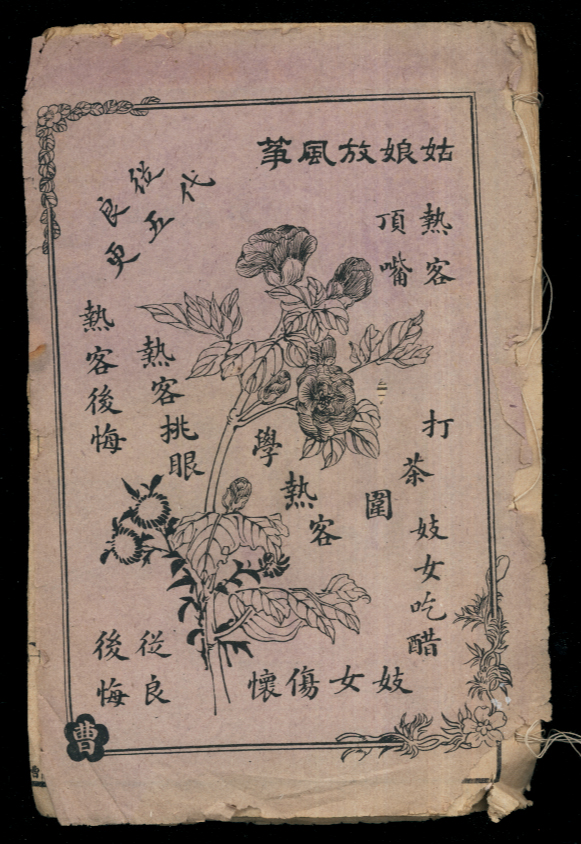 姑娘放風箏
熱客
頂嘴
代
從
五
良
更
熱客後悔
熱客挑眼
學熱客
打茶圍
妓女吃醋
妓女傷懷
從良
後悔
曹